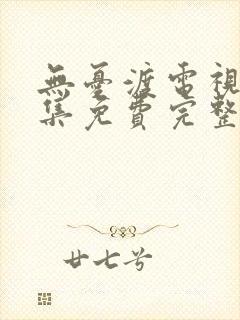 無憂渡電視
集免費完整
廿七兮